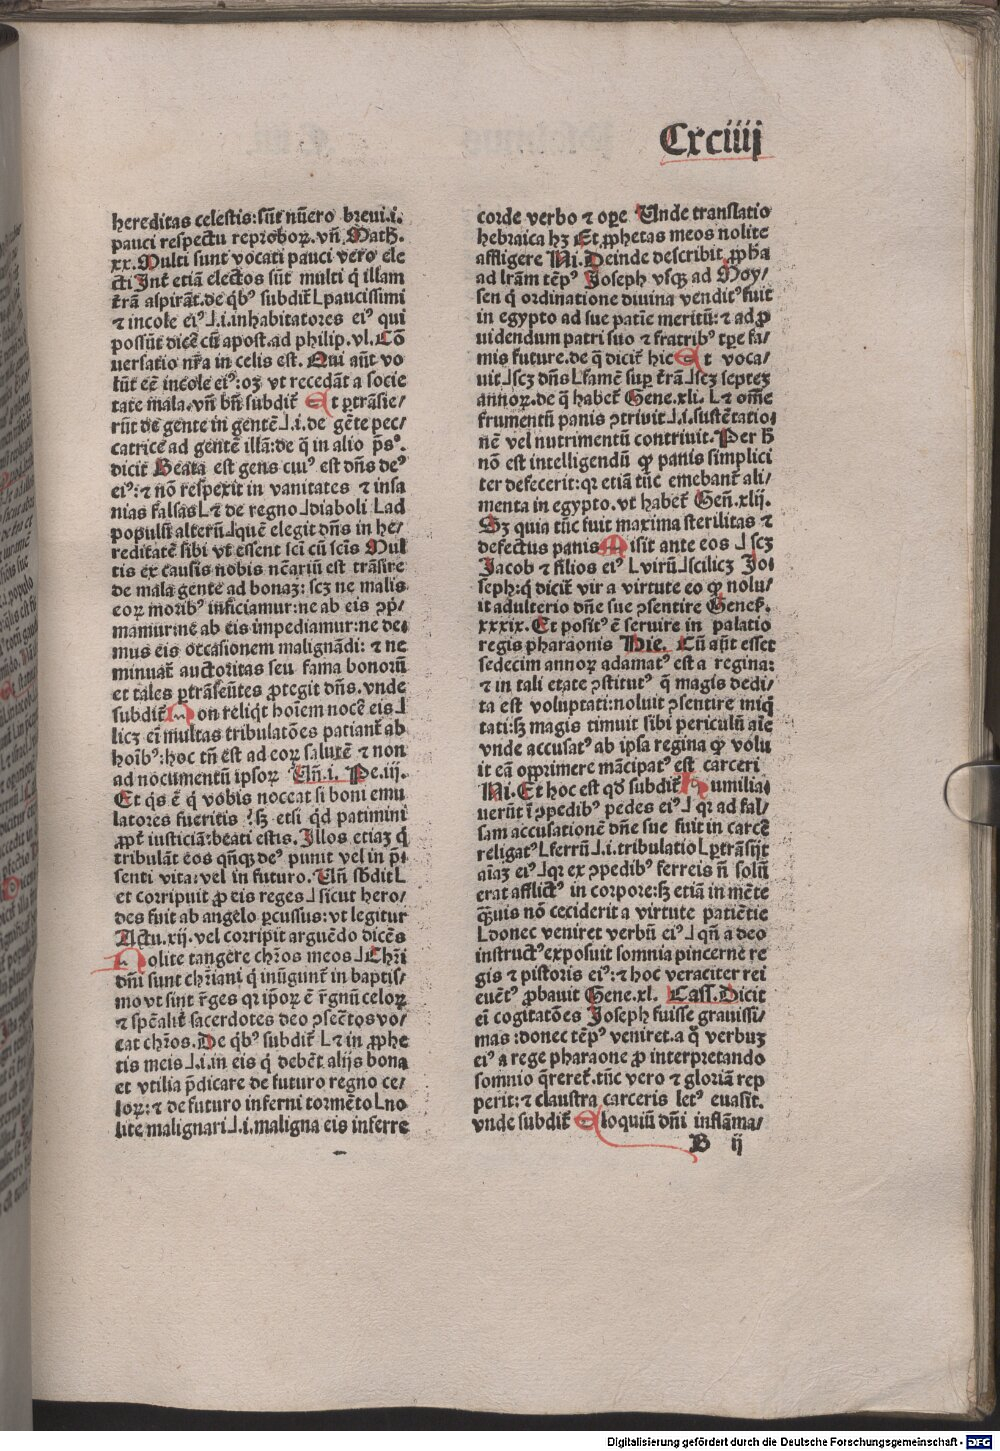 Cxciiij
hereditas celestis: sūt nūero breui.i.
pauci respectu reproboꝝ. vn̄ Math.
xx. Multi sunt vocati pauci vero ele
cti Int̄ etiā electos sūt multi q̇ illam
t̄rā aspirāt. de q̇bꝰ subdit̄ L paucissimi
⁊ incole eiꝰ ⅃.i. inhabitatores eiꝰ qui
possūt dicē cū apost. ad philip. vl. Cō
uersatio nr̄a in celis est. Qui aūt vo
lūt eē incole eiꝰ: oꝫ vt recedāt a socie
tate mala. vn̄ bn̄ subdit̄ Et ꝑtrāsie/
rūt de gente in gentē ⅃.i. de gēte pec/
catrice ad gentē illā: de q̄ in alio ps̄.
dicit Beata est gens cuiꝰ est dn̄s deꝰ
eiꝰ: ⁊ nō respexit in vanitates ⁊ insa
nias falsas L ⁊ de regno ⅃ diaboli L ad
populū alterū ⅃ quē elegit dn̄s in he/
reditatē sibi vt essent sc̄i cū sc̄is Mul
tis ex causis nobis nēcariū est trāsire
de mala gente ad bonaꝫ: scꝫ ne malis
eoꝝ moribꝰ inficiamur: ne ab eis ꝓp̄/
mamur: ne ab eis impediamur: ne de/
mus eis occasionem malignādi: ⁊ ne
minuat̄ auctoritas seu fama bonorū
et tales ꝑtrāseūtes ꝓtegit dn̄s. vnde
subdit̄ Non reliq̇t hoīem nocē eis ⅃
licꝫ eī multas tribulatōes patiant̄ ab
hoībꝰ: hoc tn̄ est ad eoꝝ salutē ⁊ non
ad nocumentū ipsoꝝ Un̄.i. Pe. iij.
Et q̇s ē q̇ vobis noceat si boni emu
latores fueritis? sꝫ etsi q̇d patimini
ꝓpt̄ iusticiā: beati estis. Illos etiaꝫ q̇
tribulāt eos qn̄qꝫ deꝰ punit vel in p̄
senti vita: vel in futuro. Un̄ sb̄dit L
et corripuit ꝓ eis reges ⅃ sicut hero/
des fuit ab angelo ꝑcussus: vt legitur
Actu. xij. vel corripit arguēdo dicēs
Nolite tangere chr̄os meos ⅃ Chr̄i
dn̄i sunt chr̄iani q̇ inūgunt̄ in baptis/
mo vt sint r̄ges qꝛ ip̄oꝝ ē r̄gnū celoꝝ
⁊ sp̄ealit̄ sacerdotes deo ↄsec̄tos vo/
cat chr̄os. De q̇bꝰ subdit̄ L ⁊ in ꝓphe
tis meis ⅃.i. in eis q̇ debēt alijs bona
et vtilia p̄dicare de futuro regno ce/
loꝝ: ⁊ de futuro inferni tormēto L no
lite malignari ⅃.i. maligna eis inferre
corde verbo ⁊ oꝑe Unde translatio
hebraica hꝫ Et ꝓphetas meos nolite
affligere Ni. Deinde describit ꝓpha
ad lr̄am tēpꝰ Joseph vsqꝫ ad Moy/
sen q̇ ordinatione diuina venditꝰ fuit
in egypto ad sue patīe meritū: ⁊ ad ꝓ
uidendum patri suo ⁊ fratribꝰ tꝑe fa/
mis future. de q̄ dicit̄ hic Et voca/
uit ⅃ scꝫ dn̄s L famē suꝑ t̄rā ⅃ scꝫ septeꝫ
annoꝝ. de q̄ habet̄ Gene. xli. L ⁊ om̄e
frumentū panis ↄtriuit ⅃.i. sustētatio/
nē vel nutrimentū contriuit. Per h̄
nō est intelligendū ꝙ panis simplici
ter defecerit: qꝛ etiā tūc emebant̄ ali/
menta in egypto. vt habet̄ Gen̄. xlij.
Sꝫ quia tūc fuit maxima sterilitas ⁊
defectus panis Misit ante eos ⅃ scꝫ
Jacob ⁊ filios eiꝰ L virū ⅃ scilicꝫ Jo/
seph: q̇ dicit̄ vir a virtute eo ꝙ nolu/
it adulterio dn̄e sue ↄsentire Genes.
xxxix. Et positꝰ ē seruire in palatio
regis pharaonis Hie. Cū aūt esset
sedecim annoꝝ adamatꝰ est a regina:
⁊ in tali etate ↄstitutꝰ q̄ magis dedi/
ta est voluptati: noluit ↄsentire miq̄
tati: sꝫ magis timuit sibi periculū aīe
vnde accusatꝰ ab ipsa regina ꝙ volu
it eā opprimere mācipatꝰ est carceri
Ni. Et hoc est qd̄ subdit̄ Humilia/
uerūt ī ↄpedibꝰ pedes eiꝰ ⅃ qꝛ ad fal/
sam accusationē dn̄e sue fuit in carcē
religatꝰ L ferrū ⅃.i. tribulatio L ꝑtrāsijt
aīaꝫ eiꝰ ⅃ qꝛ ex ↄpedibꝰ ferreis n̄ solū
erat afflictꝰ in corpore: sꝫ etiā in mēte
q̄uis nō ceciderit a virtute patiētie
L donec veniret verbū eiꝰ ⅃ qn̄ a deo
instructꝰ exposuit somnia pincerne re
gis ⁊ pistoris eiꝰ: ⁊ hoc veraciter rei
euētꝰ ꝓbauit Gene. xl. Cass. Dicit
eī cogitatōes Joseph fuisse grauissi/
mas: donec tēpꝰ veniret. a q̄ verbuꝫ
eiꝰ a rege pharaone ꝓ interpretando
somnio q̄reret̄. tūc vero ⁊ gloriā rep
perit: ⁊ claustra carceris letꝰ euasit.
vnde subdit̄ Eloquiū dn̄i inflāma/
B ij
Digitalisierung gefördert durch die Deutsche Forschungsgemeinschaft - DFG